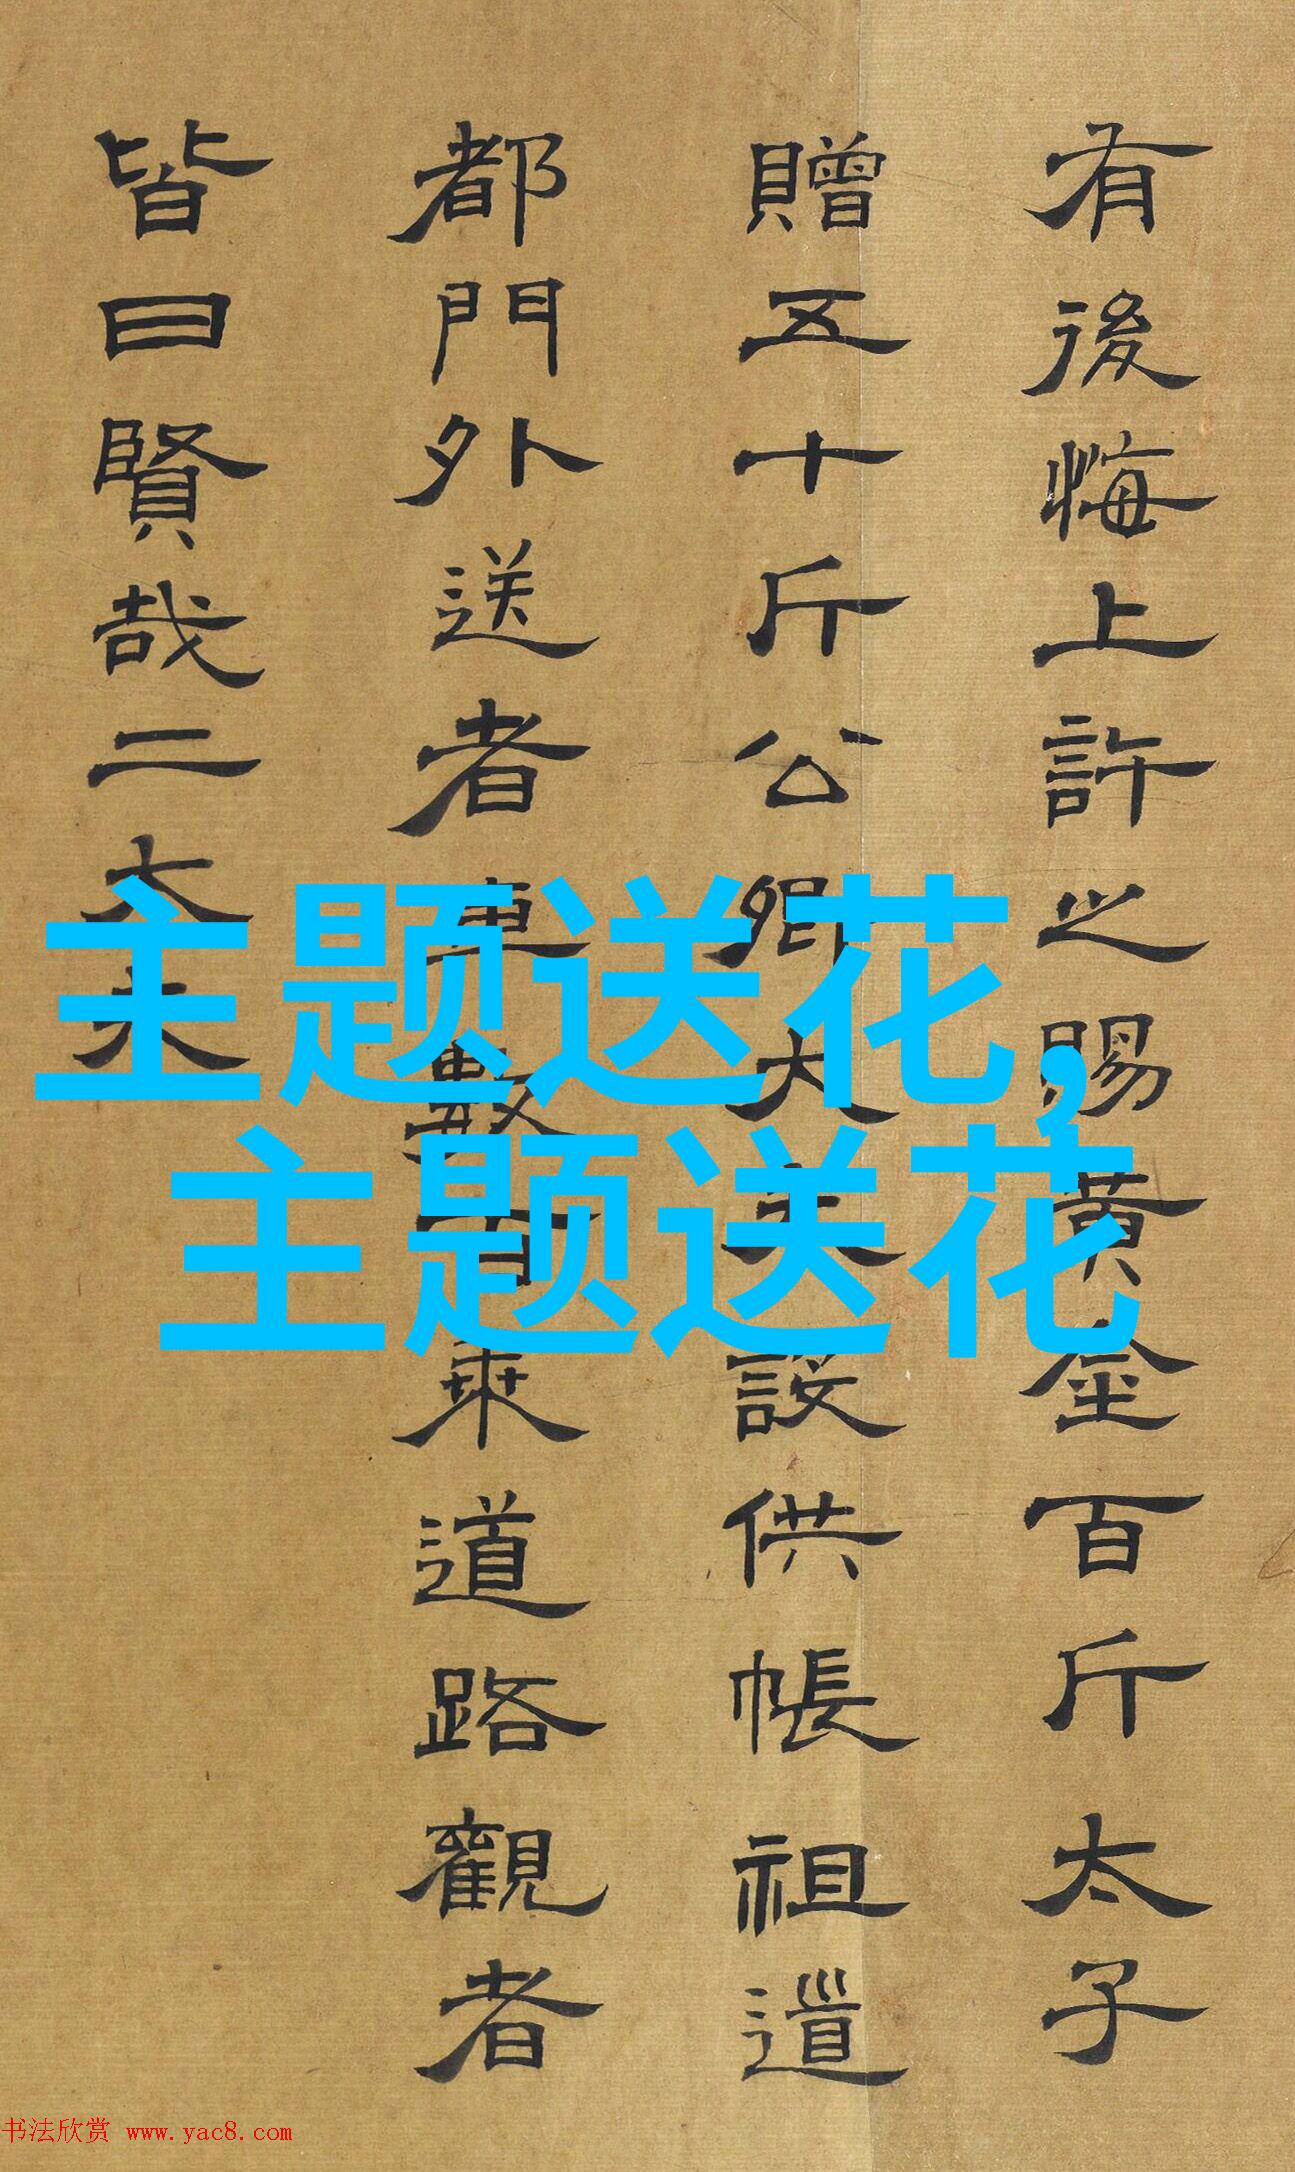 有後悔上許之賜黃金百斤太子
贈五十斤公卿大夫設供帳祖道
都門外送者車數百乘道路觀者
皆曰賢哉二大夫
主题送花，
主题送花
书法欣赏 www.yac8.com